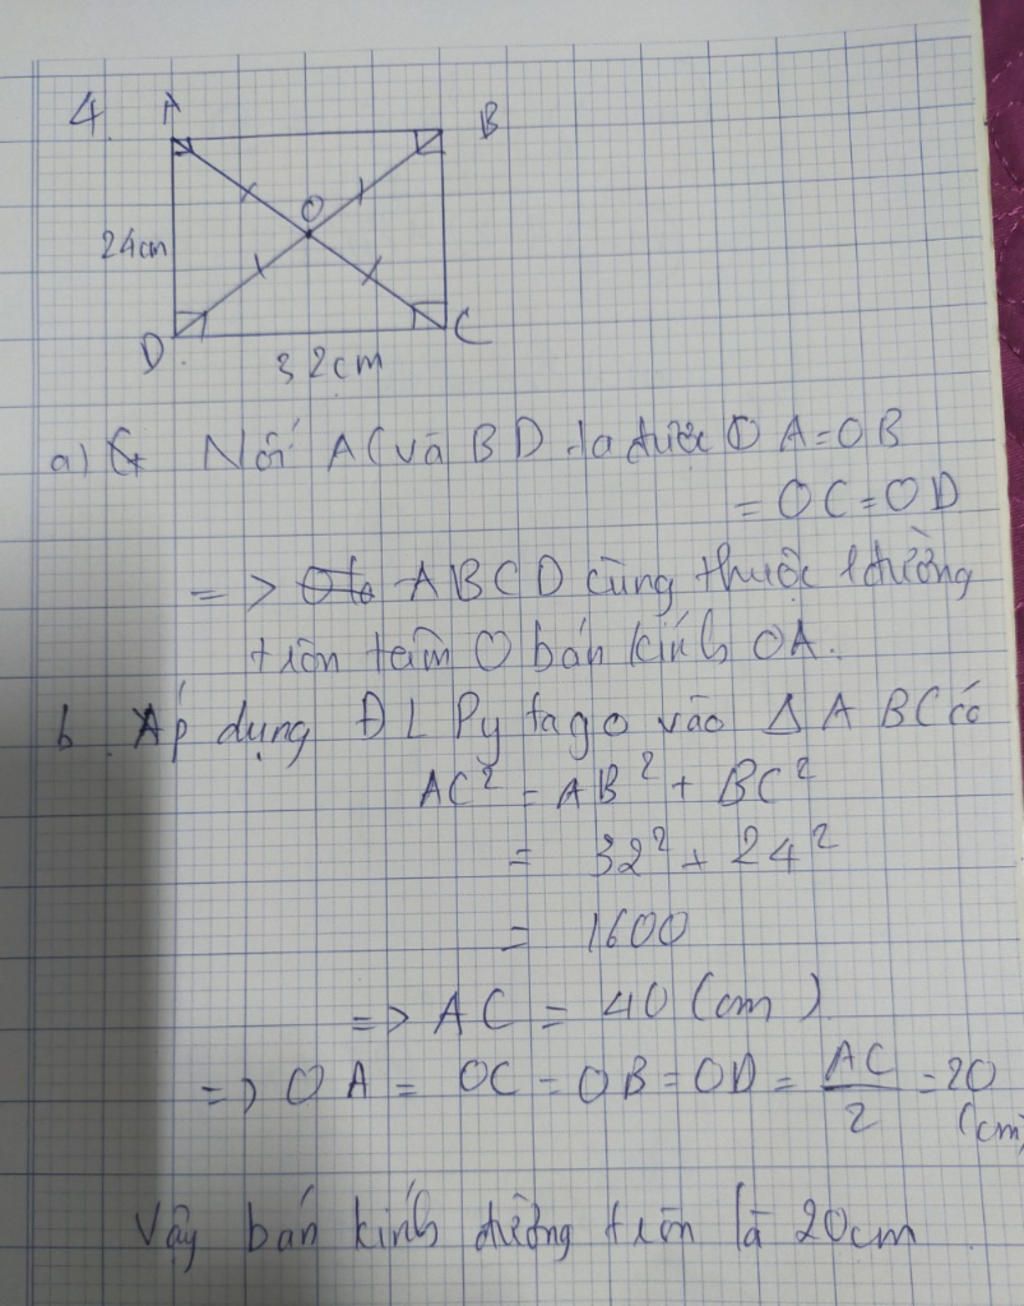 4.
A
B
O
24cm
D
C
32cm
a) Nối AC và BD ta được OA=OB
= OC=OD
=> ABCD cùng thuộc 1 đường
tròn tâm O bán kính OA.
b. Áp dụng ĐL Pytago vào Δ ABC có
AC² = AB² + BC²
= 32² + 24²
= 1600
=> AC = 40 (cm)
=> OA = OC = OB = OD = AC/2 = 20
(cm)
Vậy bán kính đường tròn là 20cm